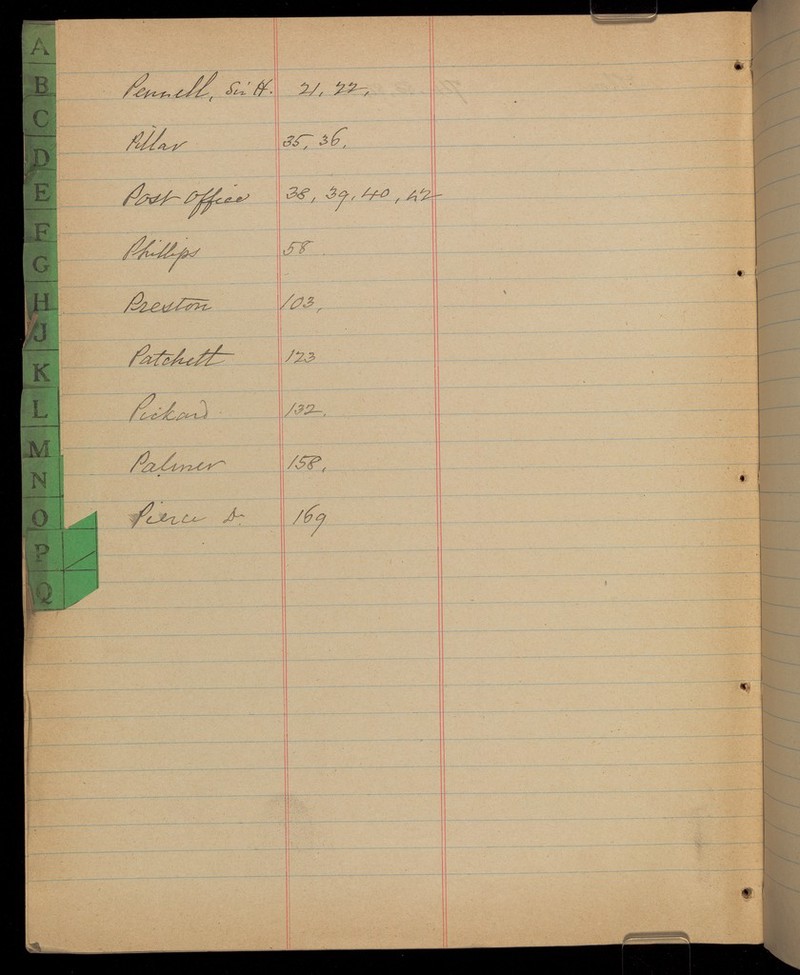 A
B
C
D
E
F
G
H
J
K
L
M
N
O
P
Q
Pennell, Sir H. 21, 22,
Pillar 35, 36,
Post Office 38, 39, 40, 42
Phillips 58
Preston 103,
Patchett 123
Pickard 132.
Palmer 158,
Pierce Dr 169